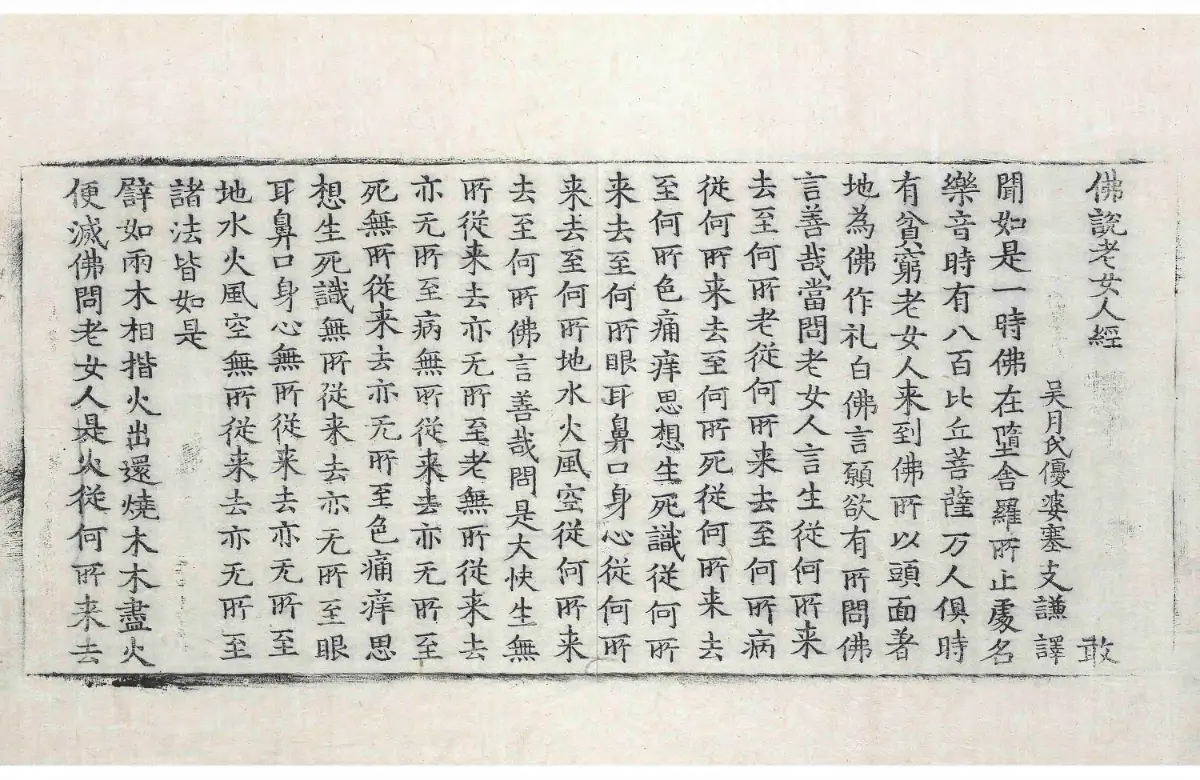 佛説老女人經 敢
吴月氏優婆塞支謙譯
聞如是一時佛在墮舍羅所止處名
樂音時有八百比丘菩薩万人俱時
有貧窮老女人来到佛所以頭面著
地為佛作礼白佛言願欲有所問佛
言善哉當問老女人言生從何所来
去至何所老從何所来去至何所病
從何所来去至何所死從何所来去
至何所色痛痒思想生死識從何所
来去至何所眼耳鼻口身心從何所
来去至何所地水火風空從何所来
去至何所佛言善哉問是大快生無
所從来去亦无所至老無所從来去
亦无所至病無所從来去亦无所至
死無所從来去亦无所至色痛痒思
想生死識無所從来去亦无所至眼
耳鼻口身心無所從来去亦无所至
地水火風空無所從来去亦无所至
諸法皆如是
譬如兩木相揩火出還燒木木盡火
便滅佛問老女人是火從何所来去